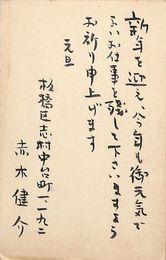 新年を迎え今年も御元気で
よいお仕事を残して下さいますよう
お祈り申上げます
元旦
板橋区志村中台町一二九二
赤木健介